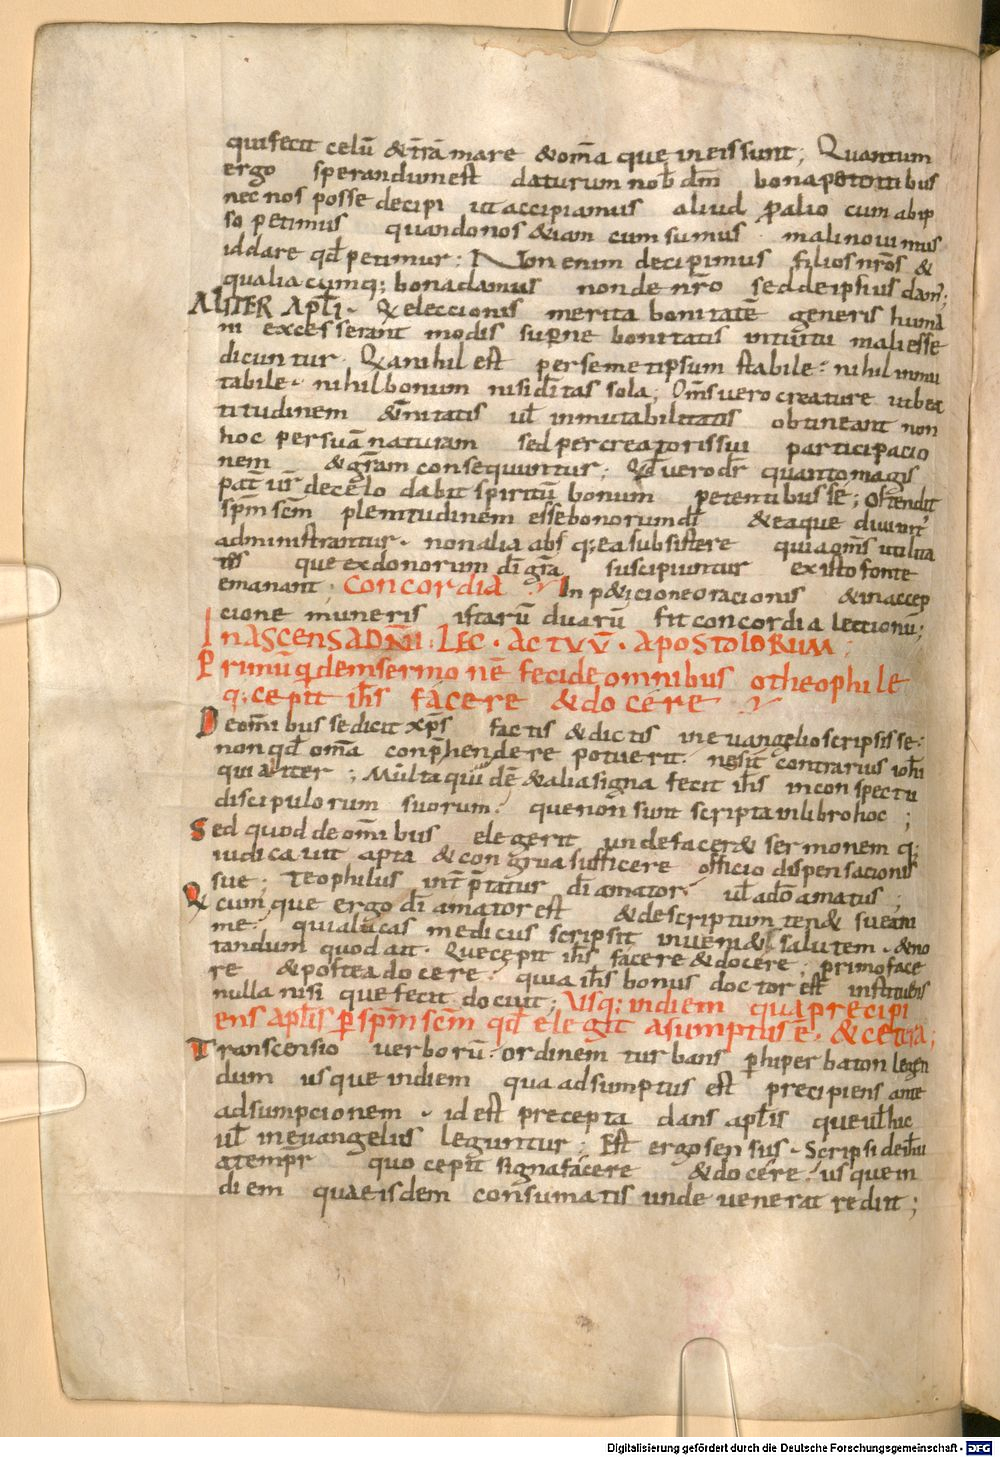 qui fecit celū & trā mare & om̄a que in eis sunt; Quantum
ergo sperandum est daturum nob̄ dm̄ bona petentibus
nec nos posse decipi ut accipiamus aliud p alio cum ab ip
so petimus quando nos etiam cum sumus mali novimus
id dare qd̄ petimur: Non enim decipimus filios nr̄os &
qualiacumq; bona damus non de nr̄o sed de ipsius dam';
ALITER Apl̄i. & eleccionis merita bonitatē generis humā
in excesserant modis supne bonitatis intuitu mali esse
dicuntur. Qa nihil est per semetipsum stabile: nihil inmu
tabile. nihil bonum nisi dītas sola; Om̄s vero creature ut bea
titudinem & nitatis ul̄ inmutabilitatis obtineant non
hoc per suā naturam sed per creatoris sui participacio
nem & gr̄am consequuntur; Qd̄ vero dr̄ quanto magis
pat̄ ur̄ de celo dabit spiritū bonum petentibus se; Ostendit
sp̄m sc̄m plenitudinem esse bonorum dī & ea que divinit'
administrantur. non alia absq; ea subsistere quia om̄s utilita
tes que ex donorum dī gr̄a suscipiuntur ex isto fonte
emanant. Concordia In peticione oracionis & in accep
cione muneris istarū duarū fit concordia lectionu;
IN ASCENSA DN̄I: LEC. ACTUŪ. APOSTOLORUM;
Primū qdem sermonē feci de omnibus o theophile
q; cepit ih̄s facere & docere
De om̄ibus se dicit xp̄s factis & dictis in evangelio scripsisse:
non qd̄ om̄a conp̄hendere potuerit. ne sit contrarius ioh̄i
qui aiter; Multa quidē & alia signa fecit ih̄s in conspectu
discipulorum suorum: que non sunt scripta in libro hoc;
Sed quod de om̄ibus elegerit unde faceret sermonem q;
iudicavit apta & congrua sufficere officio dispensacionis
sue; Teophilus int̄p̄tatur dī amator ul̄ a dō amatus;
Qicumque ergo dī amator est & descriptum tenet sue ani
me. quia lucas medicus scripsit inveniet salutem. & no
tandum quod ait. Que cepit ih̄s facere & docere; primo face
re & postea docere: quia ih̄s bonus doctor est instituens
nulla nisi que fecit docuit; Usq; in diem qua precipi
ens apl̄is p sp̄m sc̄m qd̄ elegit asumptus ē. & cetera;
Transcensio verborū: ordinem turbans p hiperbaton legen
dum usque in diem qua adsumptus est precipiens ante
adsumpcionem. id est precepta dans apl̄is que ul̄ hic
ul̄ in evangeliis leguntur; Est ergo sensus. Scripsi de ih̄u
a tempr̄ quo cepit signa facere & docere: usque in
diem qua eisdem consumatis unde venerat rediit;
Digitalisierung gefördert durch die Deutsche Forschungsgemeinschaft - DFG